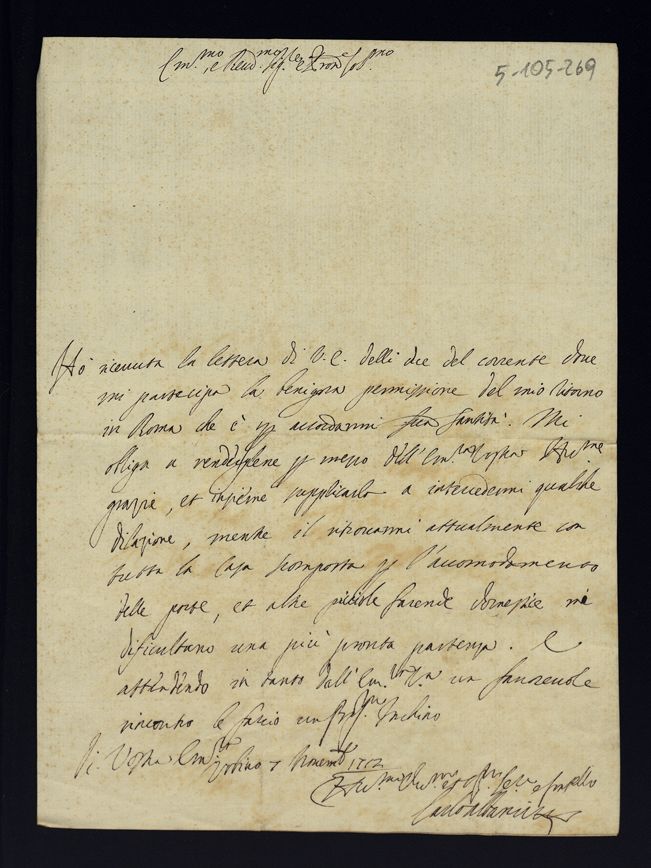 Em.mo, e Reud.mo Sig.re e Pron Col.mo
5-105-269
Hò riceuuta la lettera di V. E. delli due del corrente doue
mi partecipa la benigna permissione del mio ritorno
in Roma che è p accordarmi sua Santità. Mi
obliga a rendergliene p mezo dell'Em.za Vostra
grazie, et insieme supplicarla a intercedermi qualche
dilazione, mentre il ritrouarmi attualmente con
tutta la Casa scomposta p l'accomodamento
delle porte, et altre picciole facende domestiche mi
dificultano una più pronta partenza. E
attendendo in tanto dall'Em.za un fauoreuole
riscontro le faccio un inchino
Di Vostra Em.za
Urbino 7 Nouemb 1712
e fratello